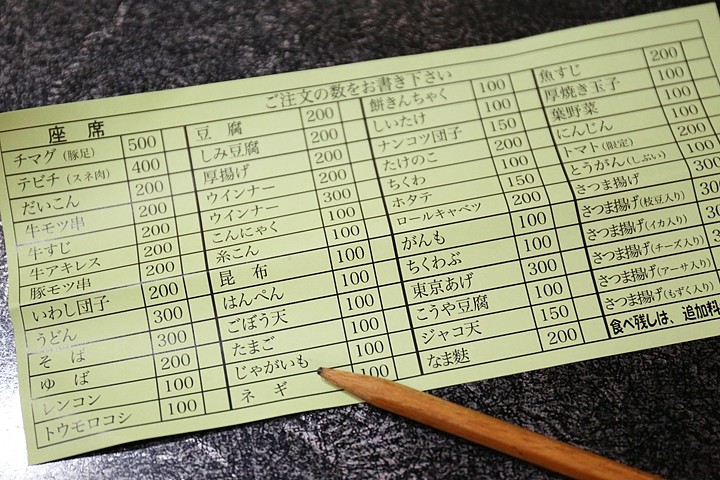 ご注文の数をお書き下さい
座席
チマグ(豚足) 500
テビチ(スネ肉) 400
だいこん 200
牛モツ串 200
牛すじ 200
牛アキレス 200
豚モツ串 200
いわし団子 200
うどん 300
そば 300
ゆば 200
レンコン 100
トウモロコシ 100
豆腐 200
しみ豆腐 200
厚揚げ 200
ウインナー 200
ウインナー 300
こんにゃく 100
糸こん 100
昆布 100
はんぺん 100
ごぼう天 100
たまご 100
じゃがいも 100
ネギ 100
餅きんちゃく 100
しいたけ 100
ナンコツ団子 150
たけのこ 200
ちくわ 100
ホタテ 150
ロールキャベツ 200
がんも 100
ちくわぶ 100
東京あげ 300
こうや豆腐 100
ジャコ天 150
なま麩 200
魚すじ 200
厚焼き玉子 100
葉野菜 100
にんじん 100
トマト(限定) 200
とうがん(しぶい) 100
さつま揚げ 300
さつま揚げ(枝豆入り) 300
さつま揚げ(イカ入り) 300
さつま揚げ(チーズ入り) 300
さつま揚げ(アーサ入り) 300
さつま揚げ(もずく入り) 300
食べ残しは、追加料